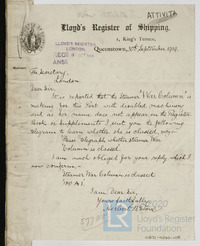 ATTIVITA
Lloyd's Register of Shipping.
2, King's Terrace,
Queenstown, 5th September 1919.
LLOYD'S REGISTER,
LONDON
ANSD
The Secretary,
London
Dear Sir,
It was reported that the steamer "War Column" is
making for this Port with disabled machinery
and as her name does not appear in the Register
Book or Supplement I sent you the following
telegram to learn whether she is classed, viz:-
"Please telegraph whether steamer War
Column is classed.
I am much obliged for your reply which I
now confirm:-
Steamer War Column is classed
100 A1.
I am, Dear Sir,
Yours faithfully,
© 2020
Lloyd's Register
Foundation